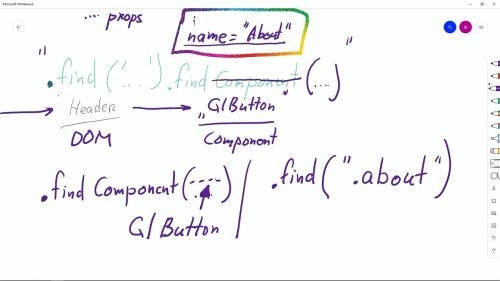 Microsoft Whiteboard
.... props
name="About"
" .find('...').find Component (...) "
Header
"GlButton"
DOM
Component
.find Component(....)
.find(".about")
GlButton